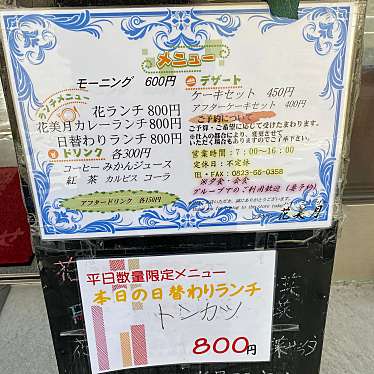 メニュー
モーニング 600円
ランチメニュー
花ランチ 800円
花美月カレーランチ 800円
日替わりランチ 800円
ドリンク 各300円
コーヒー みかんジュース
紅茶 カルピス コーラ
アフタードリンク 各150円
デザート
ケーキセット 450円
アフターケーキセット 400円
ご予約について
ご予算・ご希望に応じて受けたまわります。
※仕入の都合により、変更させて
いただく場合もありますのでご了承下さい。
営業時間:7:00~16:00
定休日:不定休
TEL・FAX:0823-65-0358
※夕食・会食
グループでのご利用歓迎(要予約)
花美月
平日数量限定メニュー
本日の日替わりランチ
トンカツ
800円